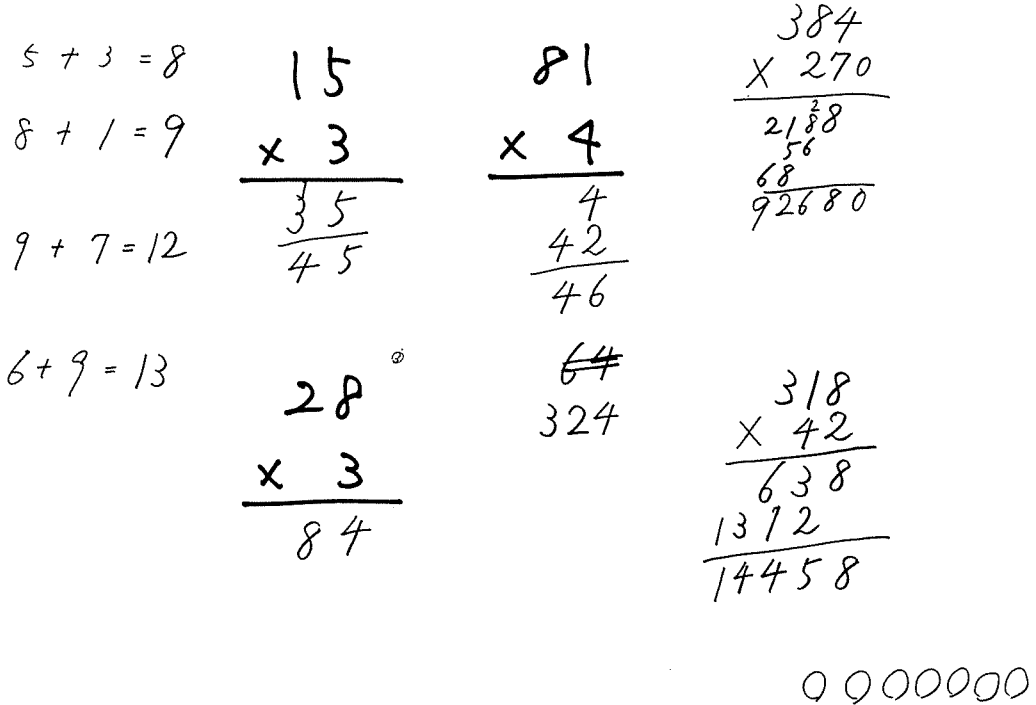 5 + 3 = 8
8 + 1 = 9
9 + 7 = 12
6 + 9 = 13
15
× 3
35
45
28
× 3
84
81
× 4
4
42
46
64
324
384
× 270
2
2188
56
68
92680
318
× 42
638
1312
14458
0 0 0 0 0 0 0